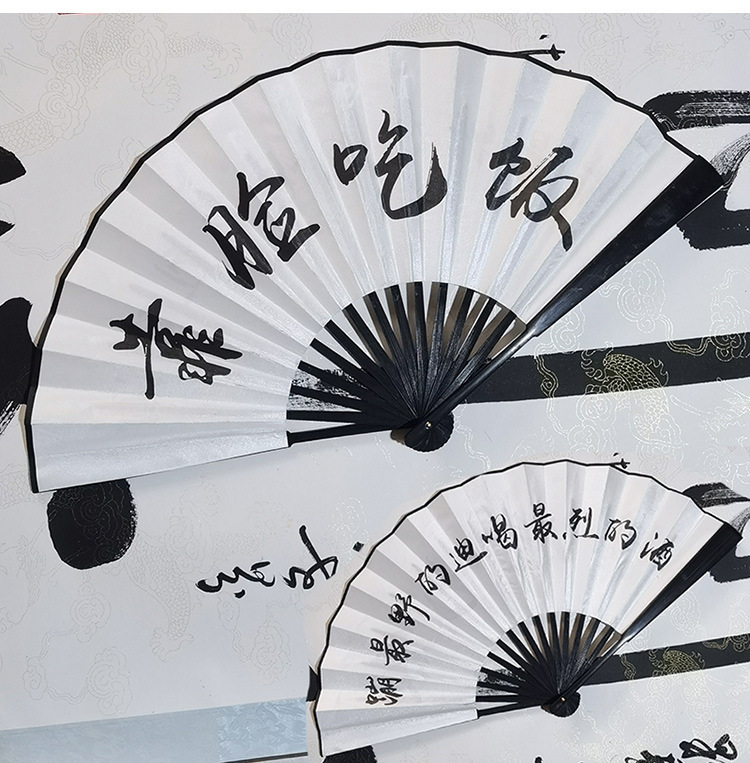 靠脸吃饭
蹦最野的迪喝最烈的酒